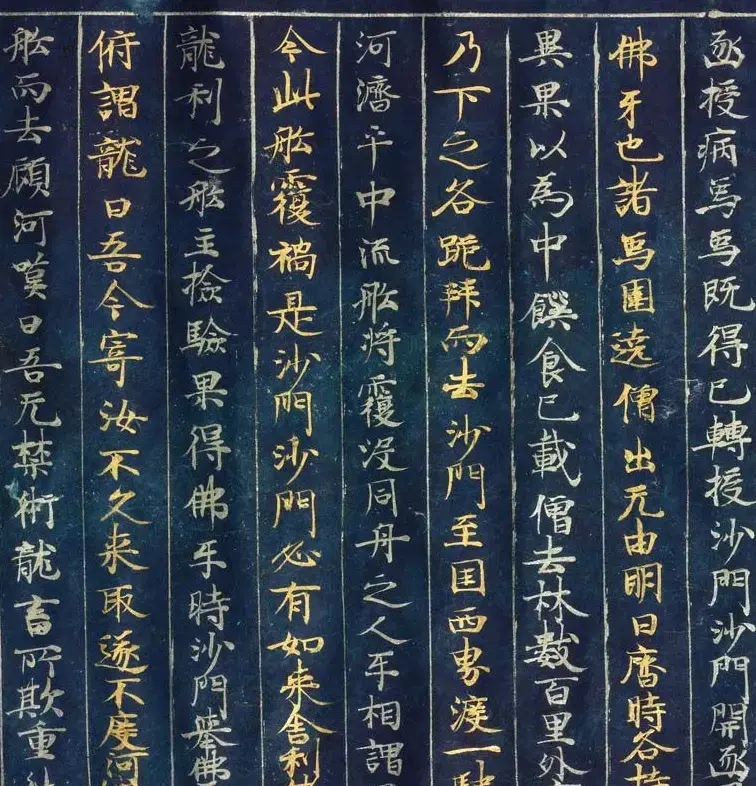 函授病爲爲既得已轉授沙門沙門開函
佛牙也諸爲圍遶僧出无由明日齋時各持
異果以為中饌食已載僧去林數百里外
乃下之各跪拜而去沙門至国西界渡一駛
河濟于中流舩将覆没同舟之人牙相謂
今此舩覆禍是沙門沙門必有如来舎利
龍利之舩主撿驗果得佛牙時沙門舉佛
俯謂龍曰吾今寄汝不久来取遂不度河
舩而去顧河嘆曰吾无禁術龍畜所欺重